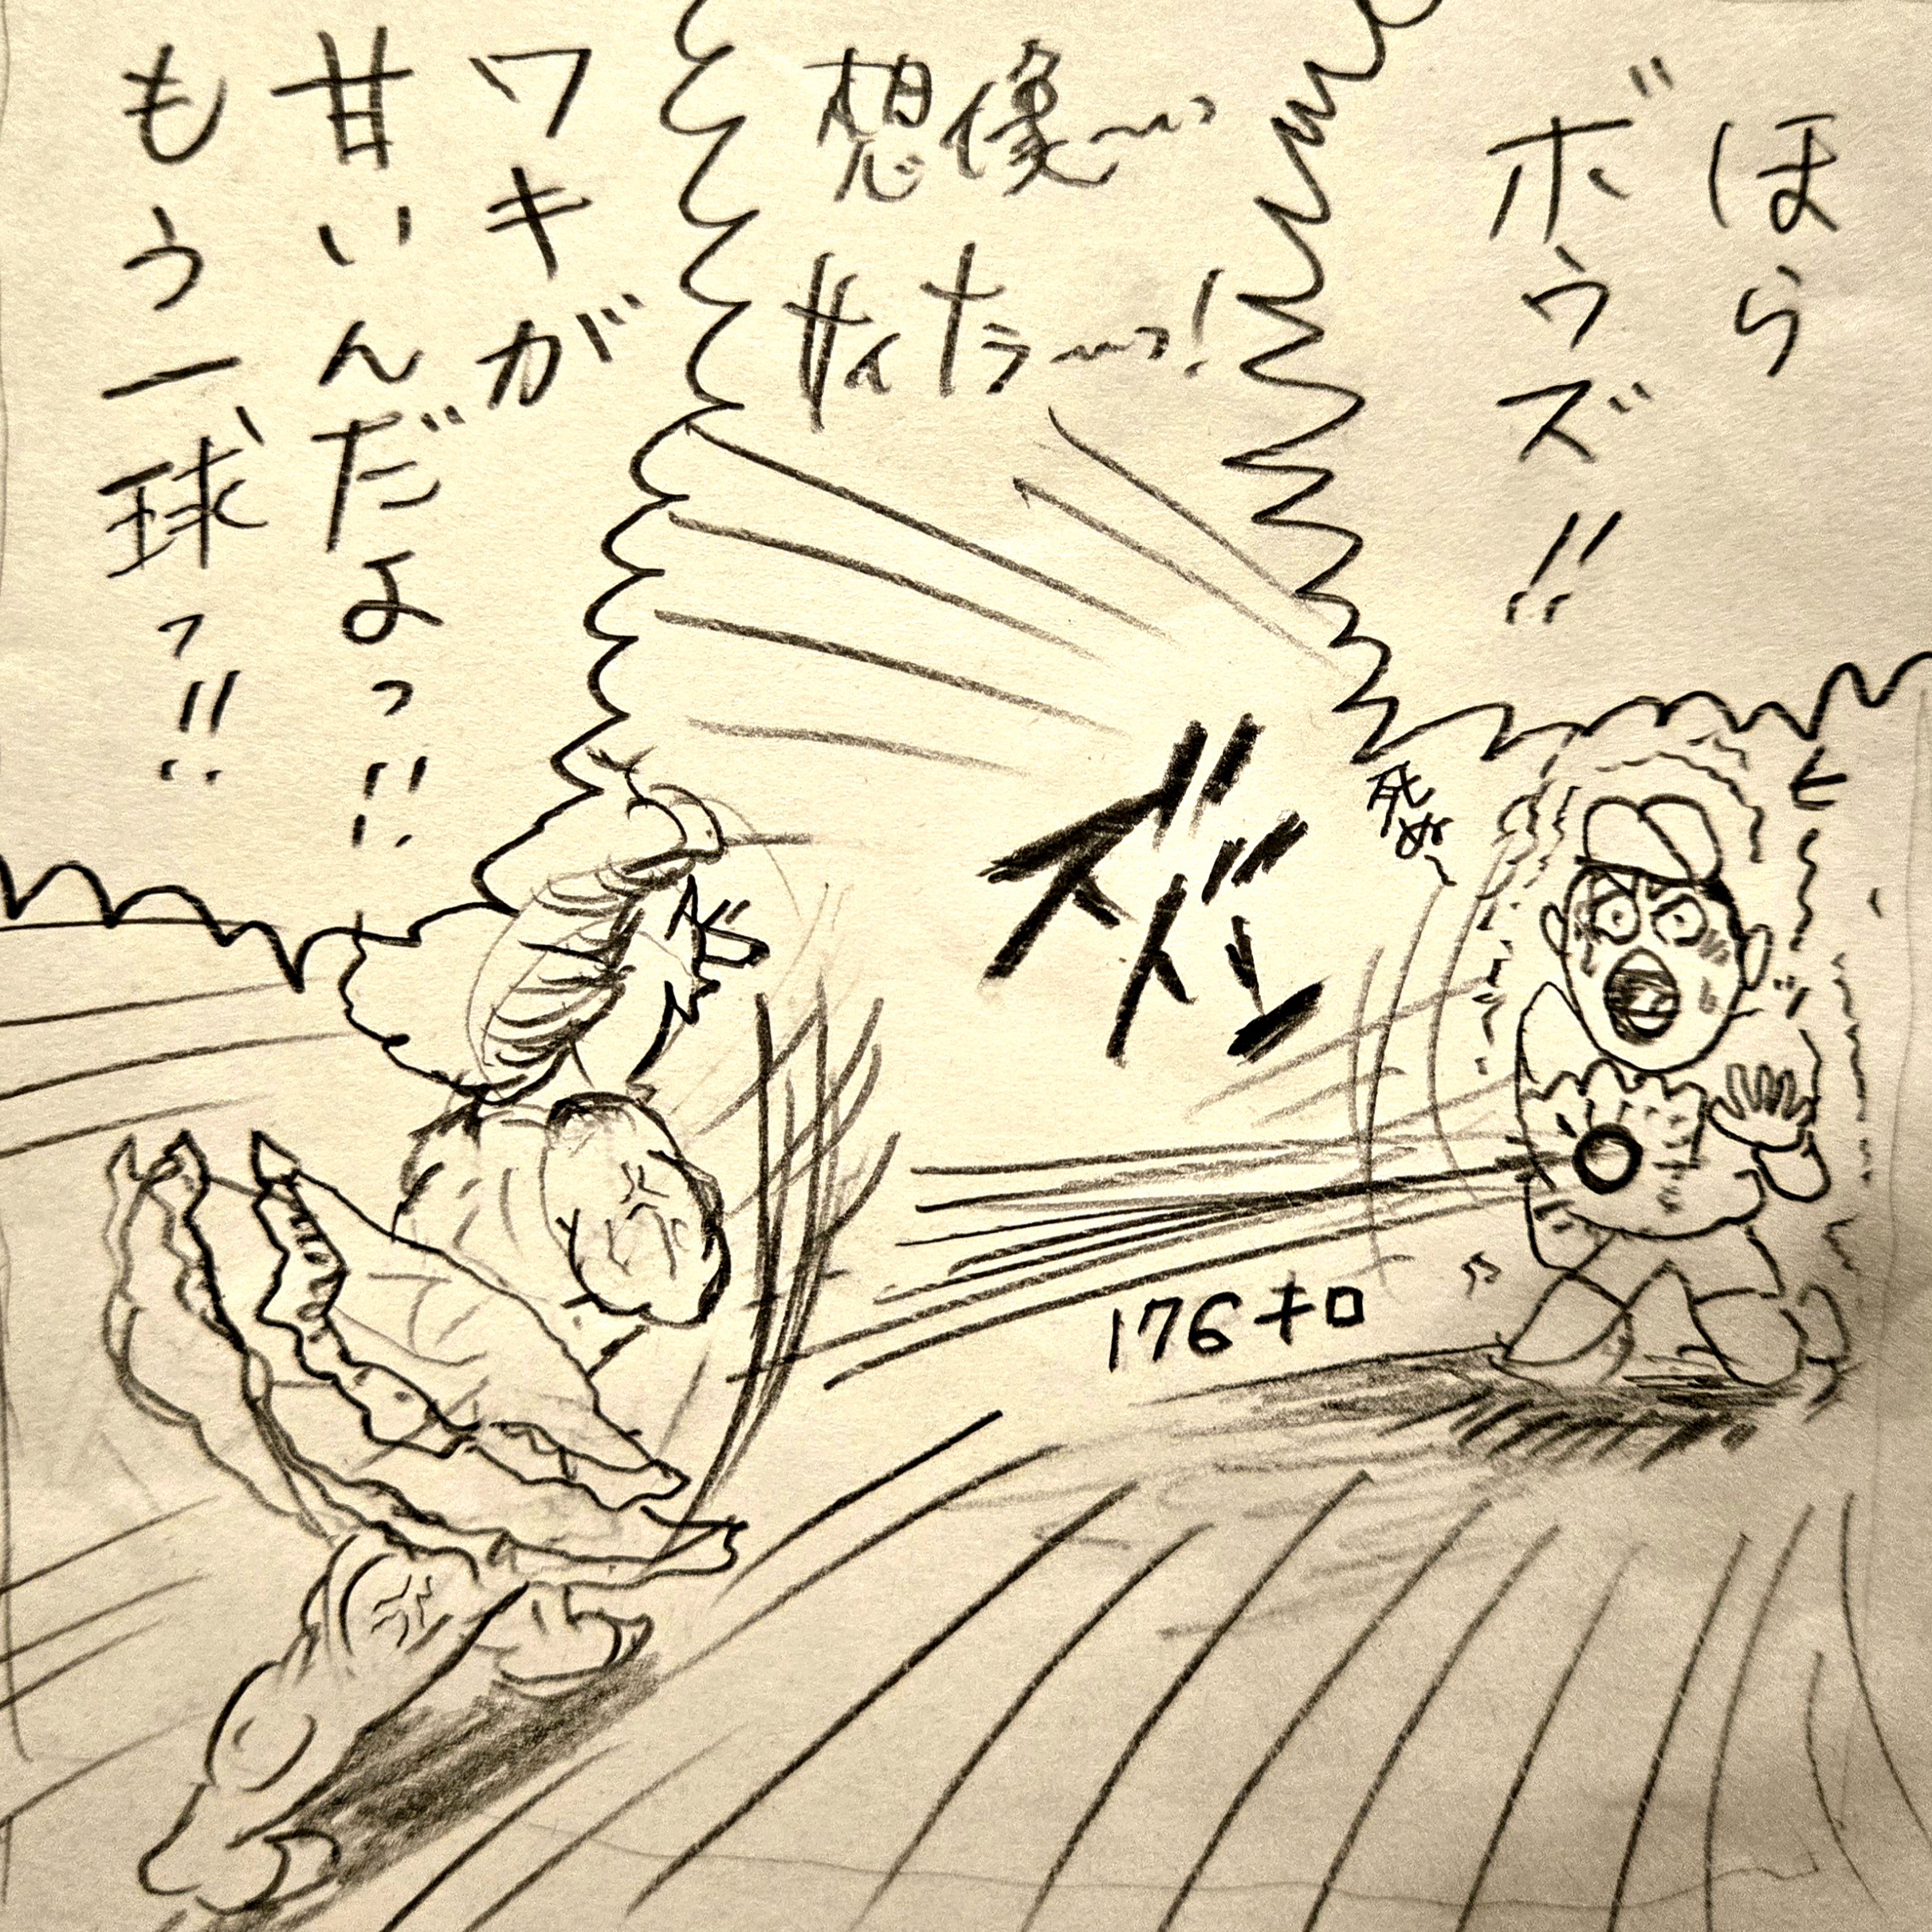 ほら
ボウズ!!
想像〜っ
サイナラ〜っ!
ワキが
甘いんだよっ!!
もう一球っ!!
ヒ〜
死ぬ〜
ズドン
176キロ